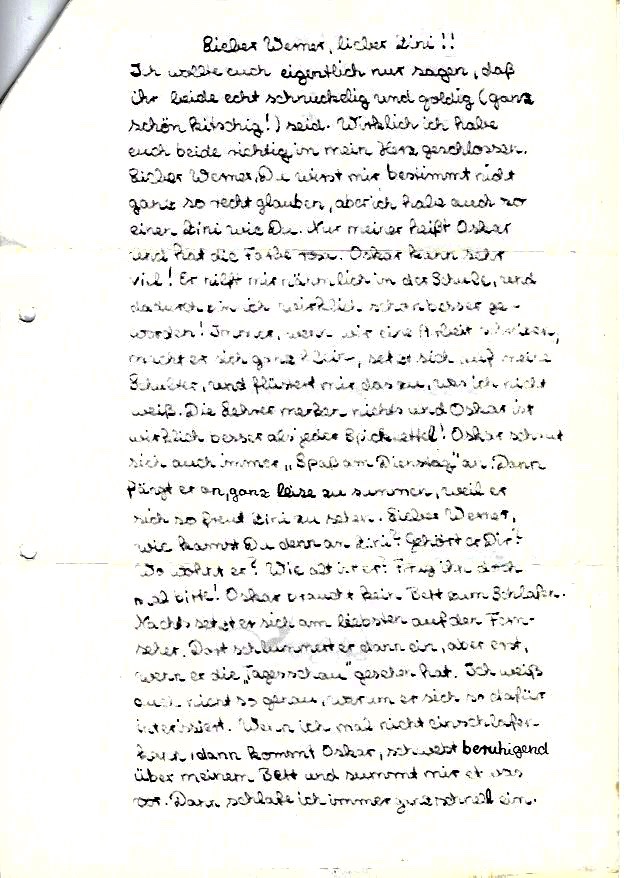 Lieber Werner, lieber Zini!!
Ich wollte euch eigentlich nur sagen, daß
ihr beide echt schnuckelig und goldig (ganz
schön kitschig!) seid. Wirklich ich habe
euch beide richtig in mein Herz geschlossen.
Lieber Werner, Du wirst mir bestimmt nicht
ganz so recht glauben, aber ich habe auch so
einen Zini wie Du. Nur meiner heißt Oskar
und hat die Farbe rosa. Oskar kann sehr
viel! Er hilft mir nämlich in der Schule, und
dadurch bin ich wirklich schon besser ge-
worden! Immer, wenn wir eine Arbeit schreiben,
macht er sich ganz klein, setzt sich auf meine
Schulter, und flüstert mir das zu, was ich nicht
weiß. Die Lehrer merken nichts und Oskar ist
wirklich besser als jeder Spickzettel! Oskar schaut
sich auch immer „Spaß am Dienstag" an. Dann
fängt er an, ganz leise zu summen, weil er
sich so freut Zini zu sehen. Lieber Werner,
wie kamst Du denn an Zini? Gehört er Dir?
Wo wohnt er? Wie alt ist er? Frag ihn doch
mal bitte! Oskar braucht kein Bett zum Schlafen.
Nachts setzt er sich am liebsten auf den Fern-
seher. Dort schlummert er dann ein, aber erst,
wenn er die „Tagesschau" gesehen hat. Ich weiß
auch nicht so genau, warum er sich so dafür
interissiert. Wenn ich mal nicht einschlafen
kann, dann kommt Oskar, schwebt beruhigend
über meinem Bett und summt mir etwas
vor. Dann schlafe ich immer ganz schnell ein.